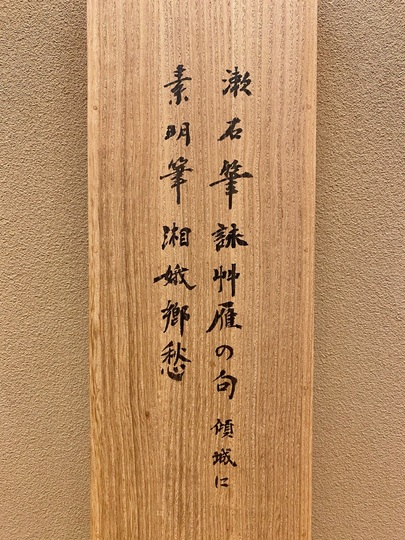 漱石筆 詠艸雁の句 傾城に
素明筆 湘娥郷愁